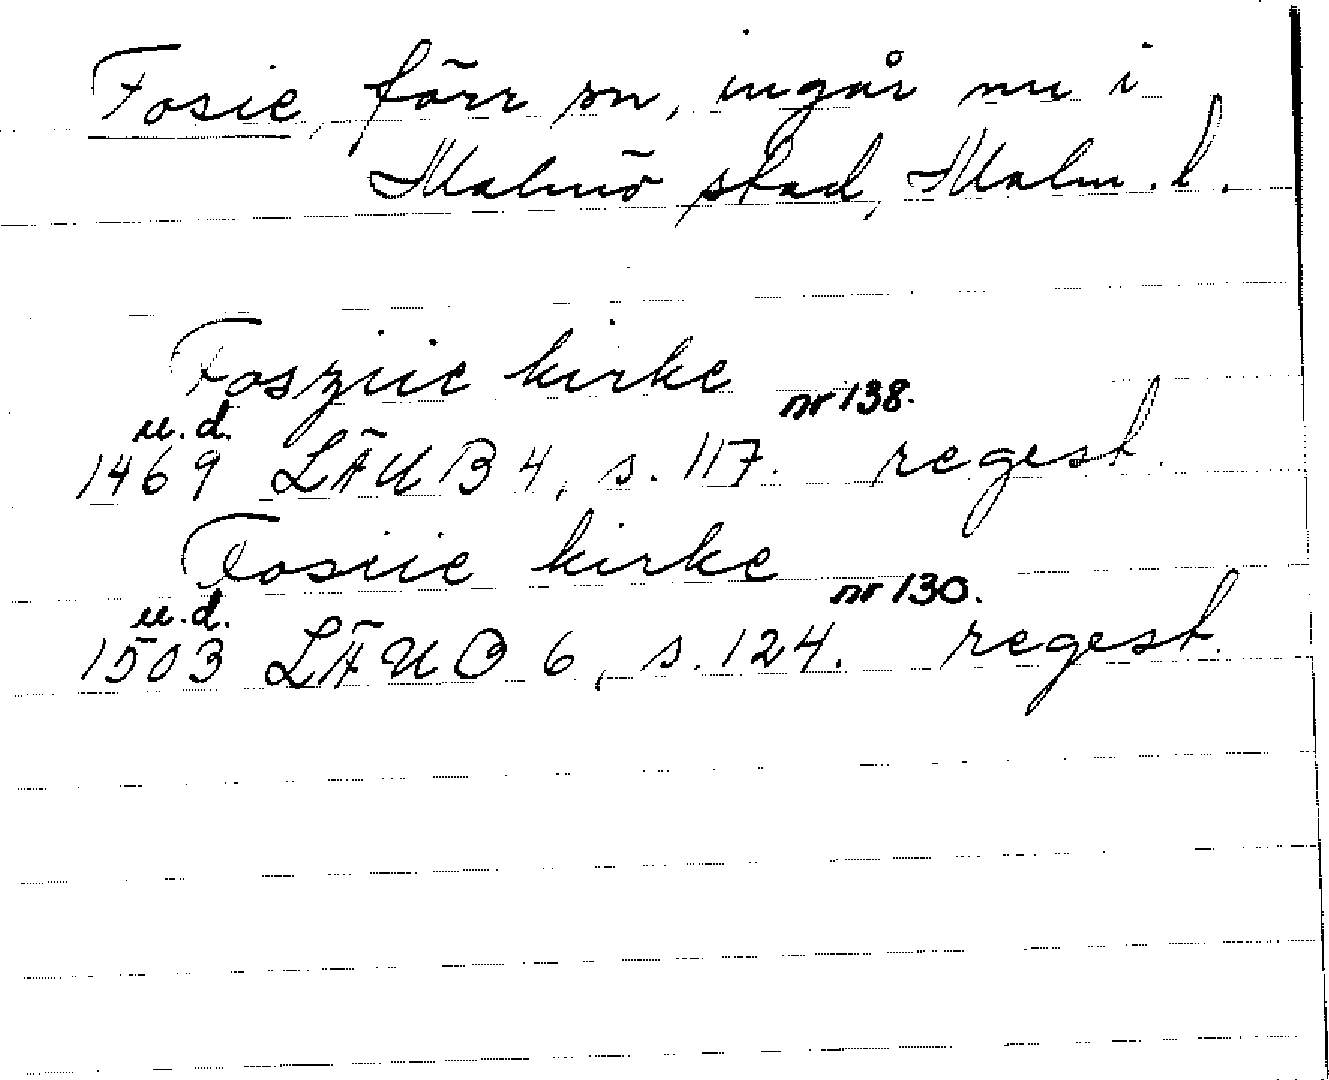 Fosie, förr sn, ingår nu i
Malmö stad, Malm. l.
Fosziie kirke
u.d. nr 138.
1469 LÄUB 4, s. 117. regest.
Fosiie kirke
u.d. nr 130.
1503 LÄUB 6, s. 124. regest.